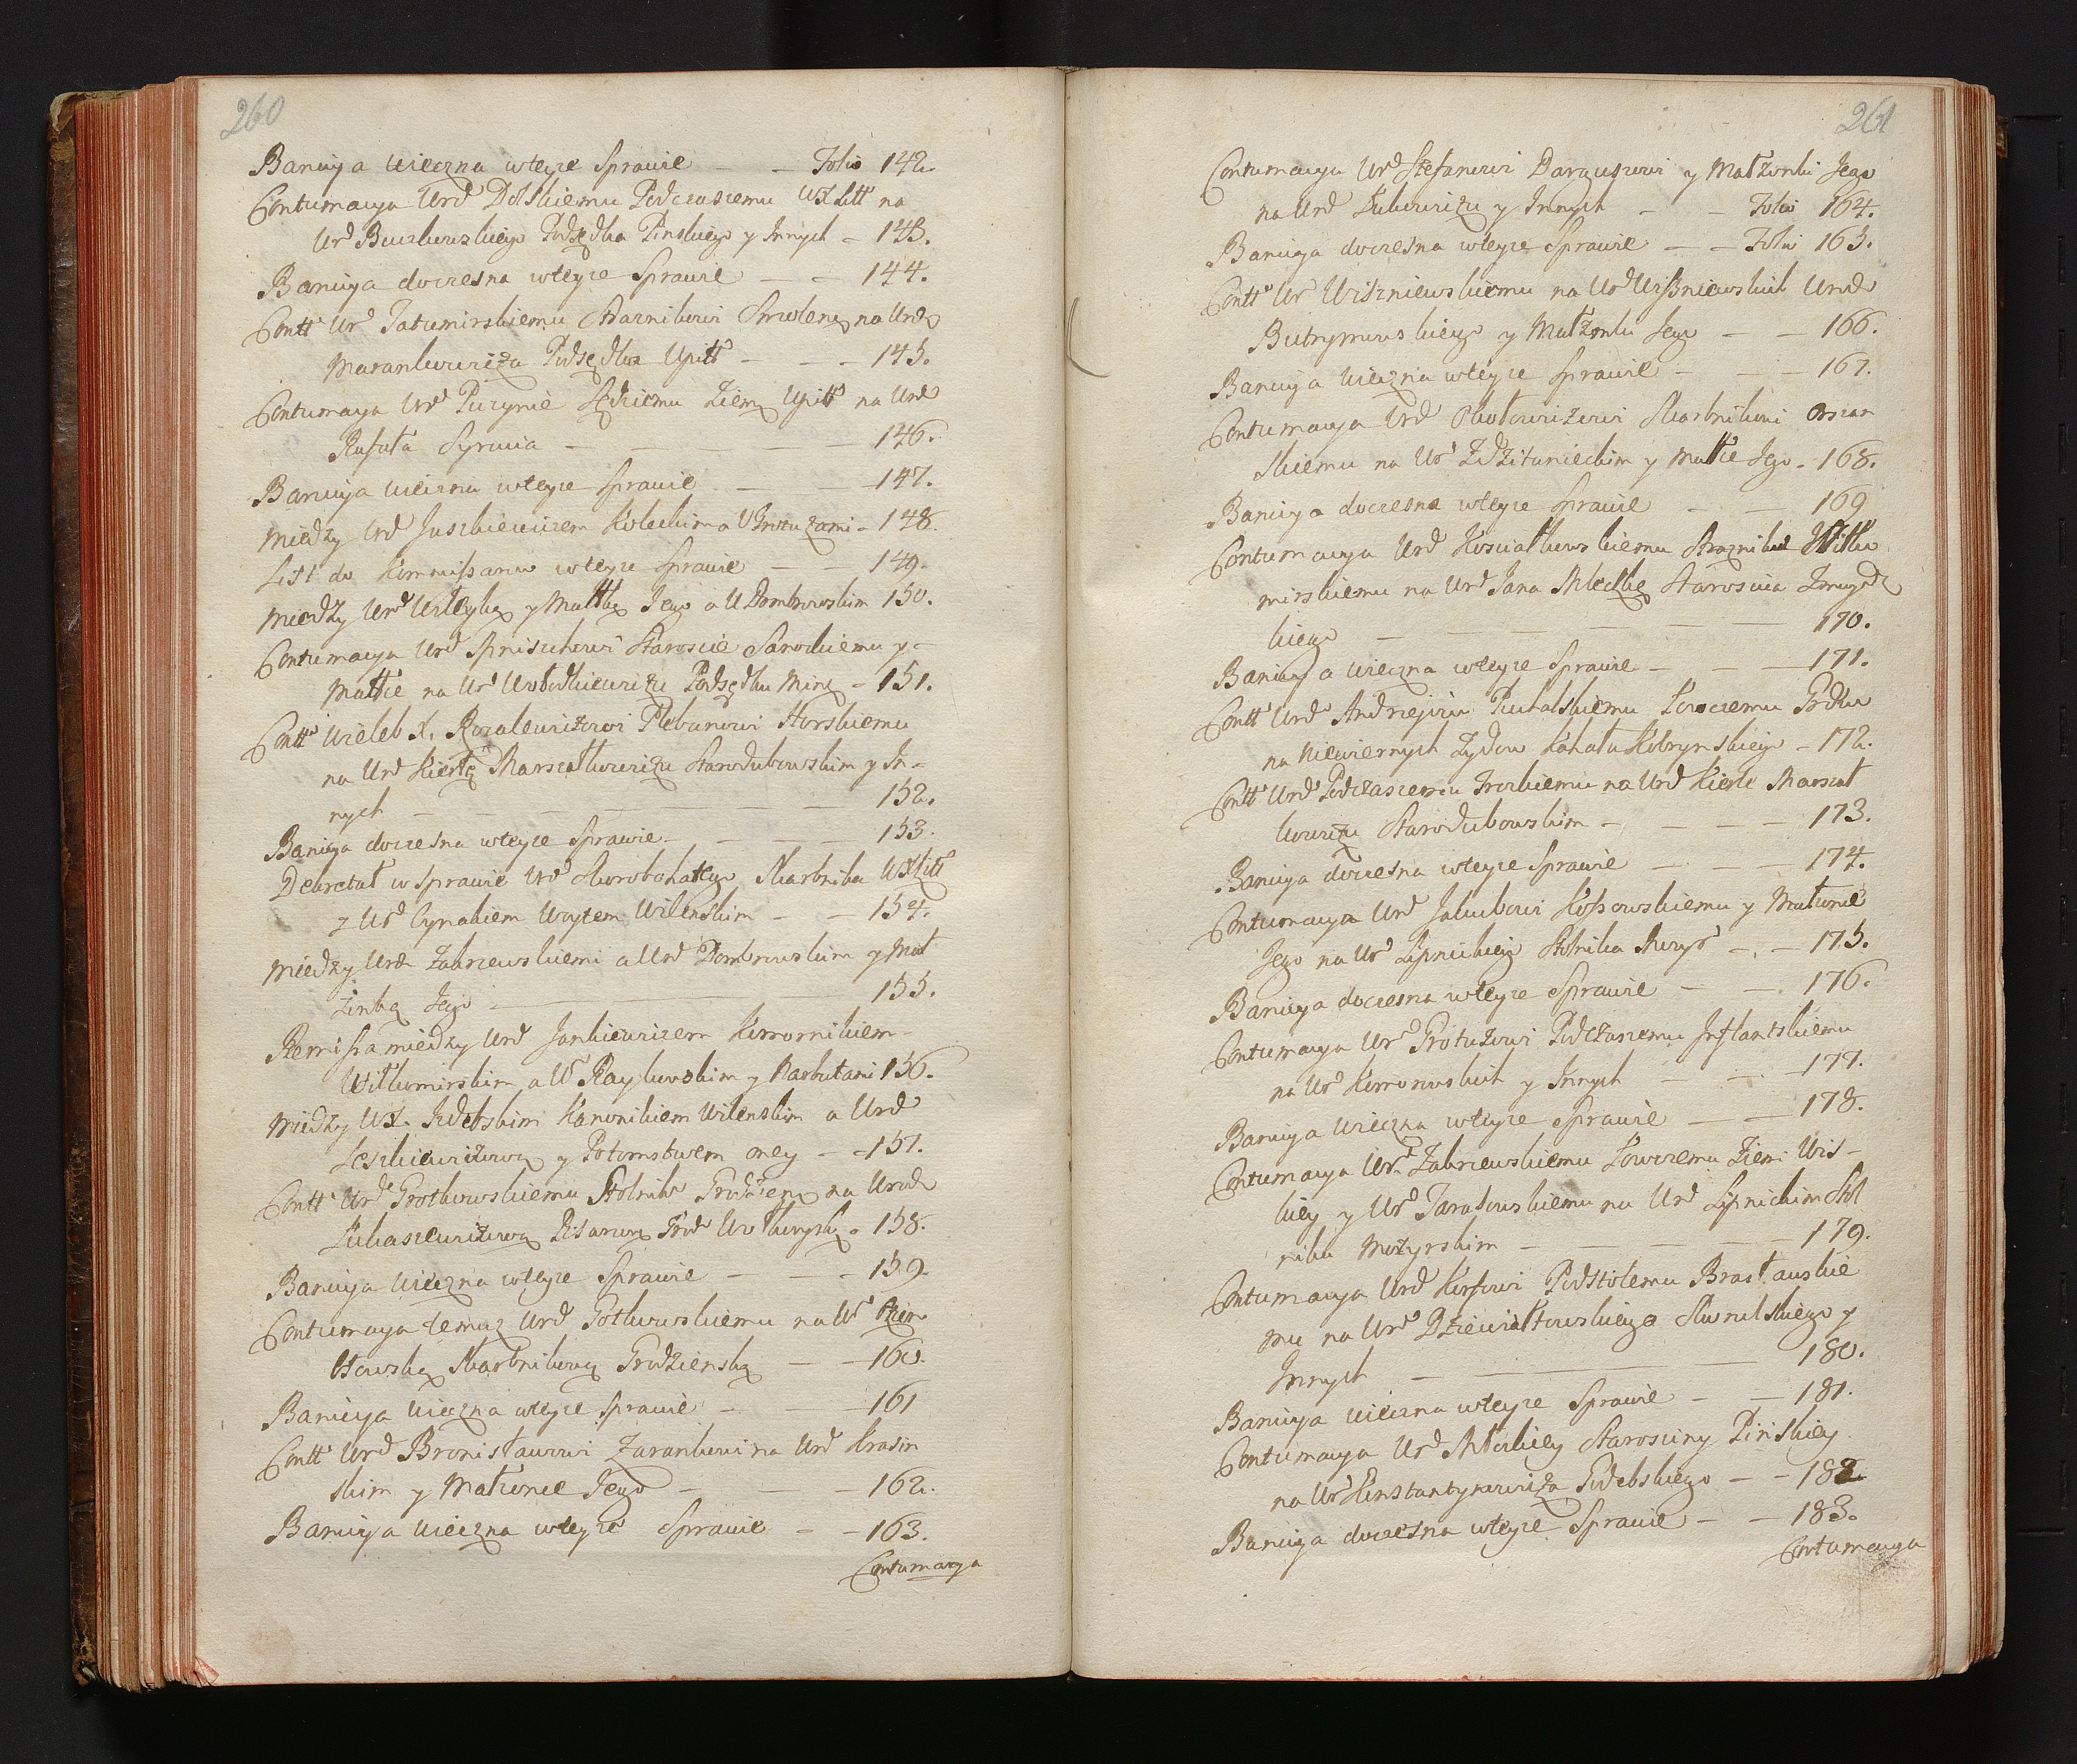 260
Banicya wieczna wteyze Sprawie — — Folio 142.
Contumacya Urd Dolskiemu Podczaszemu WXLitt na
Urd Buczkowskiego Podsędka Pinskiego y Innych - 143.
Banicya doczesna wteyze Sprawie — — 144.
Contt Ur Tatumirskiemu Straznikowi Smolenę na Urd
Marankiewicza Podsędka Upitt — — 145.
Contumacya Urd Puzynie Sędziemu Ziemę Upitt na Urd
Rafała Syrucia — — — — 146.
Banicya wieczna wteyze Sprawie — — 147.
Między Urd Juszkiewiczem Koleckim a U Jnotuzami - 148.
List do Kommissarzow wteyze Sprawie — — 149.
Między Urd Usteyką y Małłką Jego a U Dombrowskim 150.
Contumacya Urd Staroscie Sanockiemu y -
Małłce na Ur Wołodkiewiczu Podsędku Minę - 151.
Contt Wieleb X. Kowalewiczowi Plebanowi Horskiemu
na Urd Kierłę Marszałkowiczu Starodubowskim y In-
nych — — — — 152.
Banicya doczesna wteyze Sprawie — — — 153.
Dekretał w Sprawie Urd Skorobohatego Skarbnika WXLitt
z Urd Cynakiem Woytem Wilenskim — — 154.
Między Urd Zakrzewskiemi a Urd Dombrowskim y Mał
żonką Jego — — — 155.
Remissa między Urd Jankiewiczem Komornikiem -
Wiłkomirskim, a Ur Raykowskim y Narbutami 156.
Między WX. Zdebskim Kanonikiem Wilenskim a Urd
Leszkiewiczową y Potomstwem oney - - 157.
Contt Urd Grotkowskiemu Stolniko Grodzienę na Urd
Łukaszewiczową Pisarzową Grod Wołkowyską - 158.
Banicya wieczna wteyze Sprawie — — — 159.
Contumacya temuz Urd Gotkowskiemu na Ur
Skarbnikową Grodzienską — — 160.
Banicya wieczna wteyze Sprawie — — 161
Contt Urd Bronisławowi Zarankowi na Urd Krasin
skim y Małzonce Jego — — — 162.
Banicya wieczna wteyze Sprawie — — 163.
Contumacya
261
Contumacya Urd Stefanowi Darguzowi y Małzonki Jego
na Urd Łukowiczu y Innych — — Folio 164.
Banicya doczesna wteyze Sprawie — — Folio 165.
Contt Ur Wiszniewskiemu na Ur Wissniewskich Urd
Butrymowskiego y Małzonki Jego — — 166.
Banicya wieczna wteyze Sprawie — — — 167.
Contumacya Urd Okołowiczowi Skarbnikowi Orszan
skiemu na Ur Zdzitunieckim y Małłce Jego - 168.
Banicya doczesna wteyze Sprawie — — 169
Contumacya Urd Kosciałkowskiemu Straznikow Wiłko
mirskiemu na Urd Jana Mleczkę Staroscica Zmuydz
kiego — — — — — 170.
Banicya wieczna wteyze Sprawie — — — 171.
Contt Urd Andrzejowi Puchalskiemu Łowczemu Grdko
na Niewiernych Zydow Kahału Kobrynskiego - 172.
Contt Urd Podczaszemu Trockiemu na Urd Kierle Marszał
kowiczu Starodubowskim — — — — 173.
Banicya doczesna wteyze Sprawie — — — 174.
Contumacya Urd Jakubowi Kossowskiemu y Małzonce
Jego na Ur Lipnickiego Stolnika Mozyr - . - 175.
Banicya doczesna wteyze Sprawie — — 176.
Contumacya Ur Grotuzowi Podczaszemu Inflantskiemu
na Ur Komorowskich y Innych — — 177.
Banicya wieczna wteyze Sprawie — — 178.
Contumacya Urd Zakrzewskiemu Łowczemu Ziemi Wis-
kiey y Ur Taratowskiemu na Urd Lipnickim Stol
niku Mozyrskim — — — — 179.
Contumacya Urd Korfowi Podstolemu Brasławskie
mu na Urd Dziewiałtowskiego y
Innych — — — — 180.
Banicya wieczna wteyze Sprawie — — 181.
Contumacya Urd Starosciny Pinskiey
na Ur Konstantynowicza Zdebskiego — - 182.
Banicya doczesna wteyze Sprawie — — 183.
Contumacya